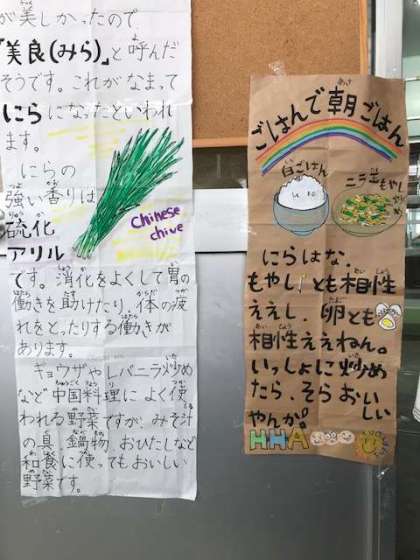 が美しかったので
「美良(みら)」と呼んだ
そうです。これがなまって
にらになったといわれ
ます。
にらの
強い香りは
硫化
アリル
Chinese
chive
です。消化をよくして胃の
働きを助けたり、体の疲
れをとったりする働きが
あります。
ギョウザやレバニラ炒め
など中国料理によく使
われる野菜ですが、みそ汁
の具、鍋物、おひたしなど
和食に使ってもおいしい
野菜です。
ごはんで朝ごはん
白ごはん
にらはな、
もやしとも相性
ええし、卵とも
相性ええねん。
いっしょに炒め
たら、そらおいしい
やんか。
HHA